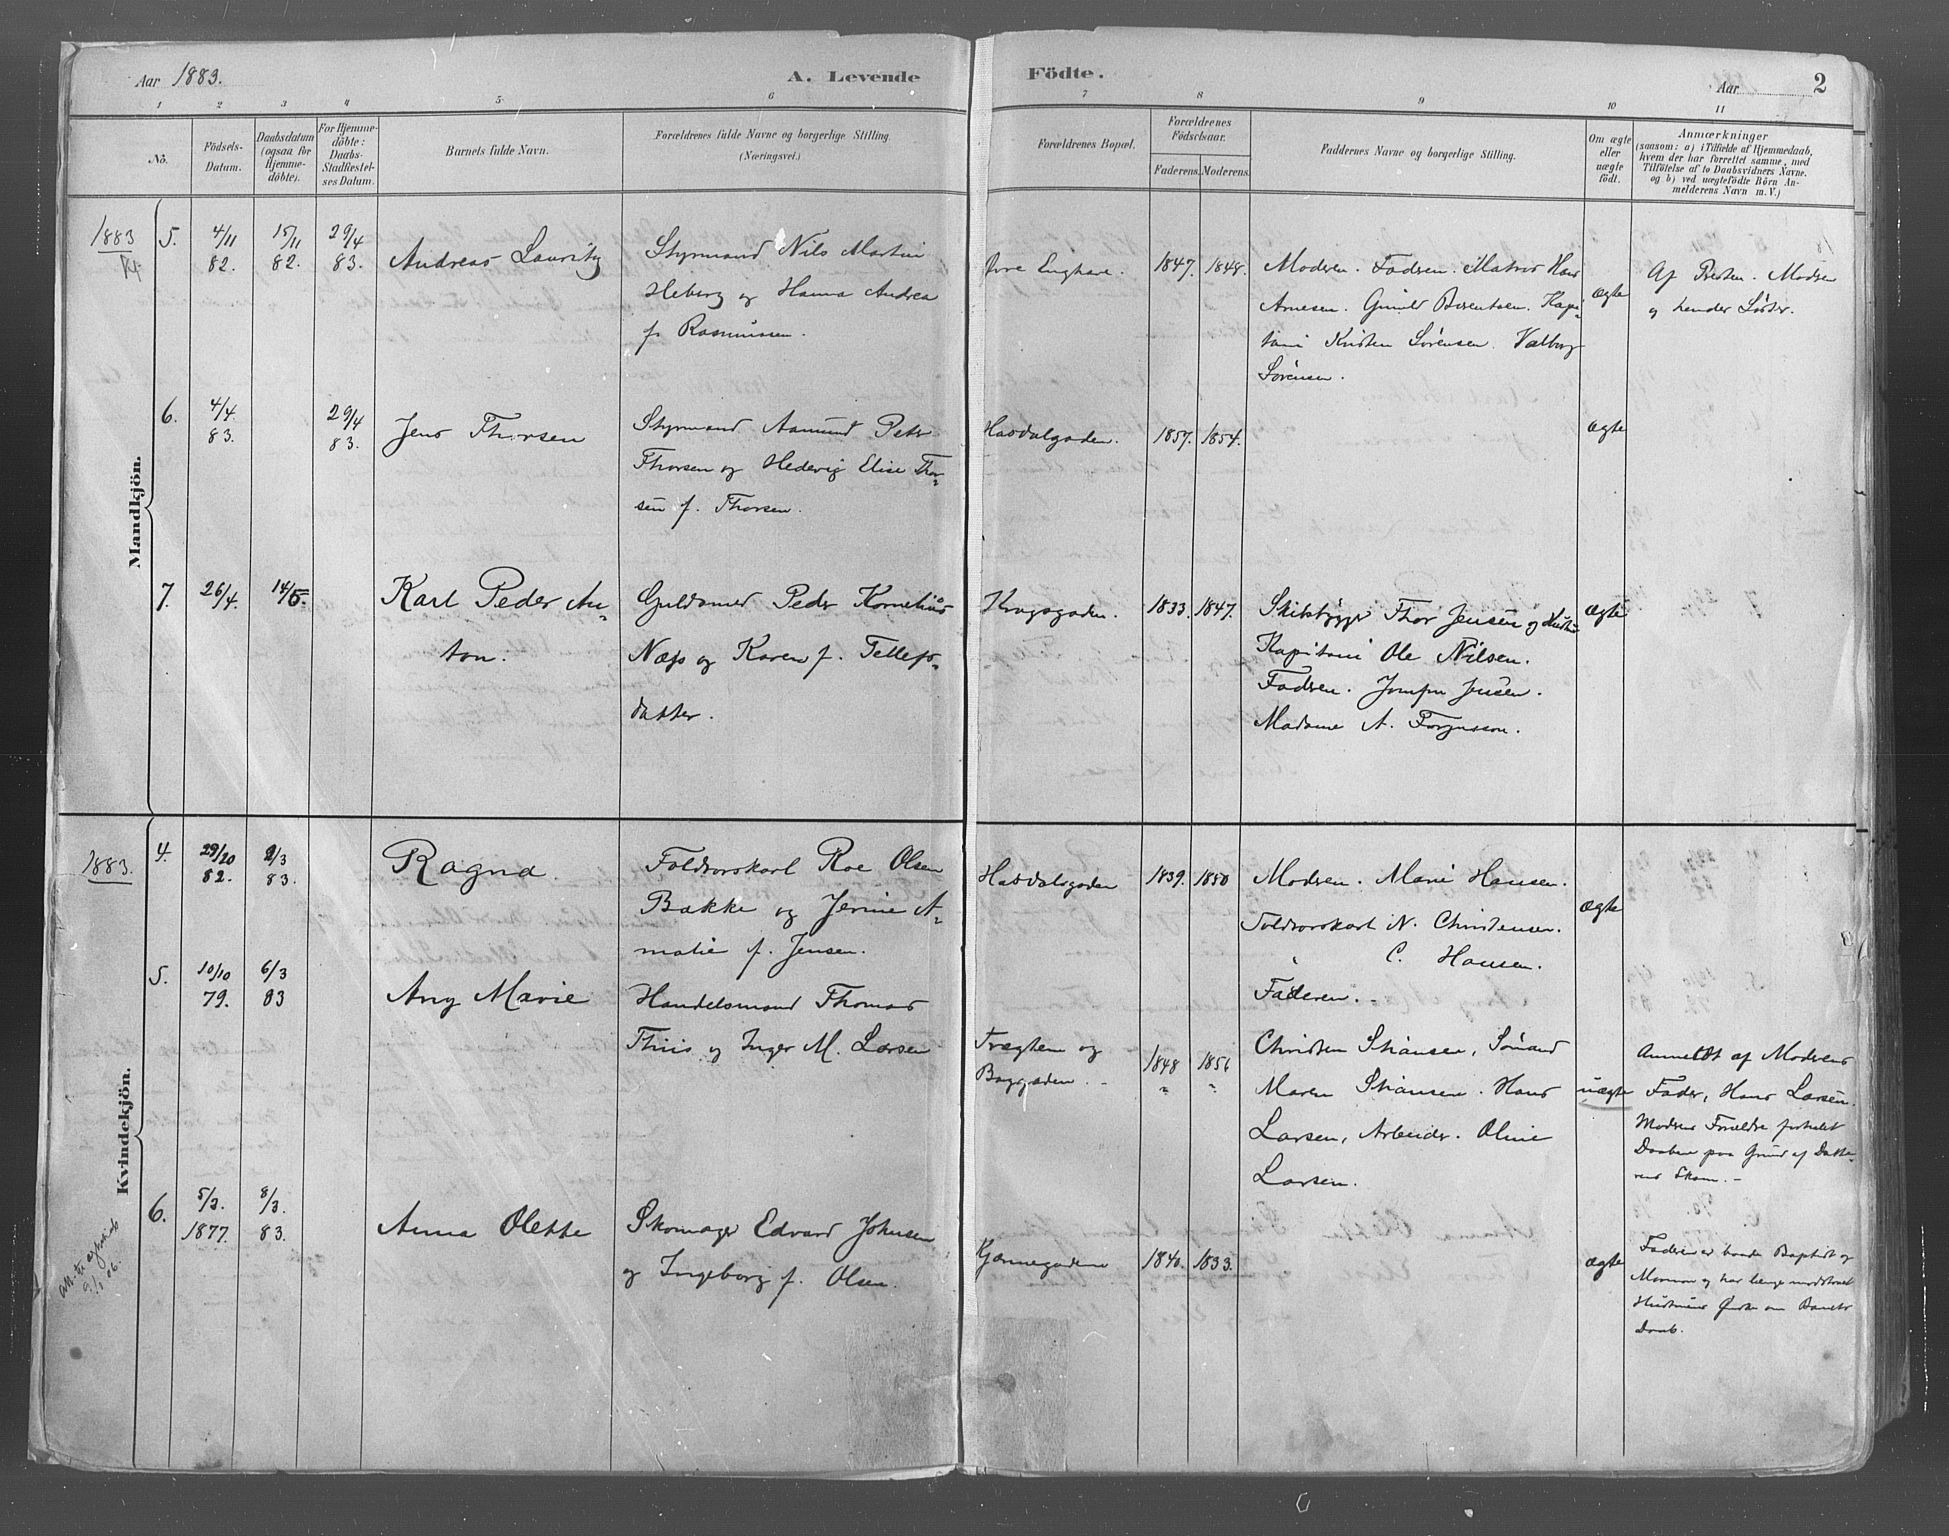 Aar 1883.
A. Levende
Födte.
Aar
2
1 2 3 4 5 6 7 8 9 10 11
Nö.
Födsels-
Datum.
Daabsdatum
(ogsaa for
Hjemme-
döbte).
For Hjemme-
döbte:
Daabs-
Stadfæstel-
ses Datum.
Barnets fulde Navn.
Forældrenes fulde Navne og borgerlige Stilling.
(Næringsvei.)
Forældrenes Bopæl.
Forældrenes
Födselsaar.
Faderens. Moderens.
Faddernes Navne og borgerlige Stilling.
Om ægte
eller
uægte
födt.
Anmærkninger
(saasom: a) i Tilfælde af Hjemmedaab,
hvem der har forrettet samme, med
Tilföielse af to Daabsvidners Navne.
og b) ved uægtefödte Börn An-
melderens Navn m. V.)
Mandkjön.
1883
5.
4/11
82.
15/11
82.
29/4
83.
Andreas Lauritz
Styrmand Nils Martin
Heberg og Hanna Andrea
f. Rasmussen.
Øvre Enghave.
1847. 1848.
Modren. Fadren. Matros Hans
Arnesen. Gunild Berentsen. Kapi-
tain Kristen Sörensen. Valborg
Sörensen.
ægte
Af Presten. Modren
og hendes Söster.
6.
4/4
83.
29/4
83.
Jens Thorsen
Styrmand Aamund Peter
Thorsen og Hedevig Elise Thor-
sen f. Thorsen.
Havdalgaden.
1857. 1854.
ægte
7.
26/4.
14/5.
Karl Peder An-
ton.
Guldsmed Peder Kornelius
Næss og Karen f. Tellefs-
datter.
Krogsgaden.
1833. 1847.
Skibsbygger Thor Jensen og Hustru
Kapitain Ole Nilsen.
Fadren. Josefen Jensen.
Madame A. Torgussen.
ægte
Kvindekjön.
1883.
4.
29/10
82.
2/3
83.
Ragna.
Toldrorskarl Roe Olsen
Bakke og Jenine A-
malie f. Jensen.
Havdalsgaden
1839. 1850
Modren. Marie Hansen.
Toldrorskarl N. Christensen.
C. Hansen.
Faderen.
ægte
5.
10/10
79.
6/3
83
Any Marie
Handelsmand Thomas
Thiis og Inger M. Larsen
Tragten og
Baggaden.
1848 1856
Christen Stiansen, Sömand
Maren Stiansen. Hans
Larsen, Arbeider. Oline
Larsen.
uægte
Anmeldt af Modrens
Fader, Hans Larsen.
Modrens Forældre forhalet
Daaben paa Grund af Datte-
rens Skam.
6.
5/3.
1877.
8/3.
83.
Anna Olette
Skomager Edvard Johnsen
og Ingeborg f. Olsen.
Kjønnegadene
1840. 1833.
ægte
Fadren er baade Baptist og
Mormon og har længe modstaaet
Hustruens Ønske om Barnets
Daab.